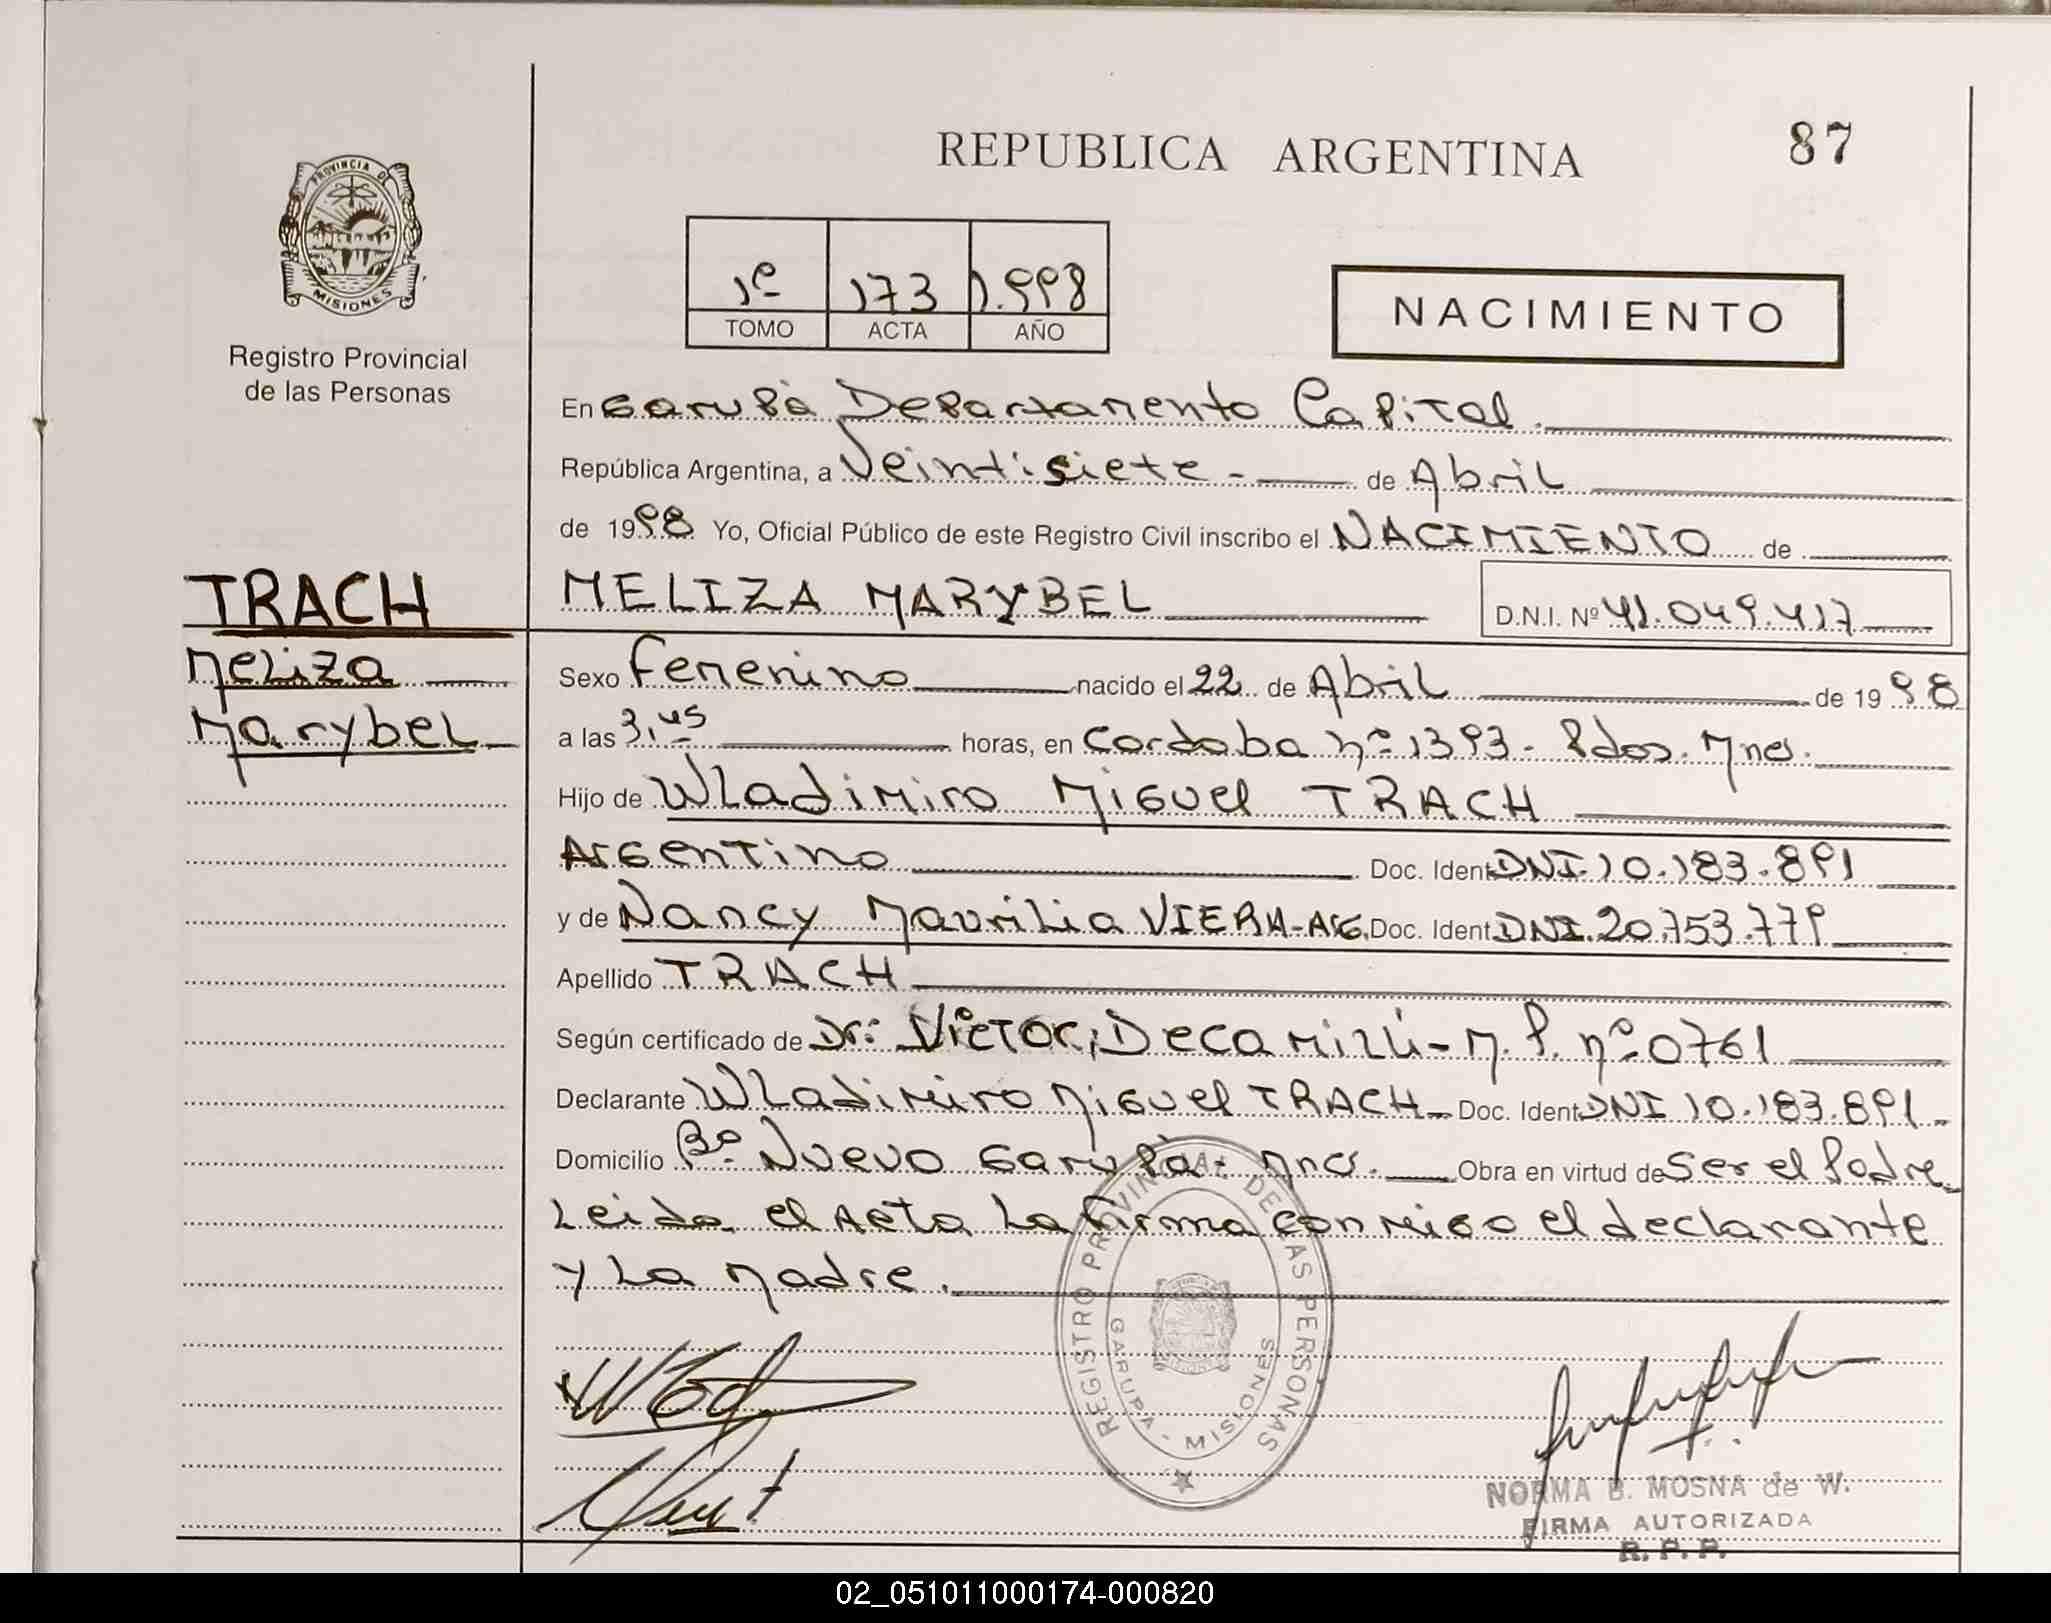 REPUBLICA ARGENTINA
87
PROVINCIA DE
MISIONES
Registro Provincial
de las Personas
1º 173 1.998
TOMO ACTA AÑO
NACIMIENTO
En Garupá Departamento Capital.
República Argentina, a Veintisiete - de Abril
de 1998 Yo, Oficial Público de este Registro Civil inscribo el NACIMIENTO de
TRACH
MELIZA MARYBEL D.N.I. Nº 41.049.417
Meliza
Sexo Femenino nacido el 22 de Abril de 1998
Marybel
a las 3,45 horas, en Cordoba nº 1393- Pdas. Mnes.
Hijo de Wladimiro Miguel TRACH
Argentino Doc. Ident DNI.10.183.891
y de Nancy Maurilia VIERA-ARG. Doc. Ident DNI.20.753.779
Apellido TRACH
Según certificado de Dr: Victor, Decamilli- M.P. nº 0761
Declarante Wladimiro Miguel TRACH- Doc. Ident DNI 10.183.891-
Domicilio Bº. Nuevo Garupá- Mnes. Obra en virtud de Ser el Padre
Leida el Acta La firma conmigo el declarante
y La Madre.
REGISTRO PROVINCIAL DE LAS PERSONAS
GARUPA - MISIONES
NORMA B. MOSNA de W.
FIRMA AUTORIZADA
R. P. P.
02_051011000174-000820